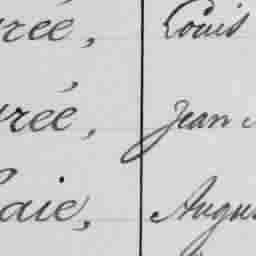 rée, Louis
rée, Jean
aie, Augu